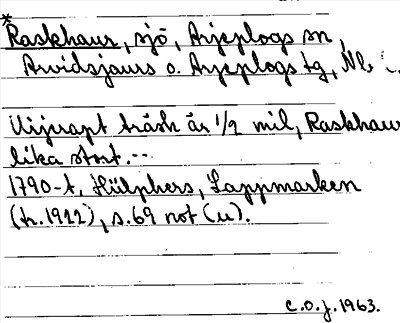 *Raskhaur, sjö, Arjeplogs sn,
Arvidsjaurs o. Arjeplogs tg,
träsk är 1/2 mil, Raskhaur
lika stort. --
1790-t, Hülphers, Lappmarken
(tr. 1922), s. 69 not (u).
C.O.J. 1963.